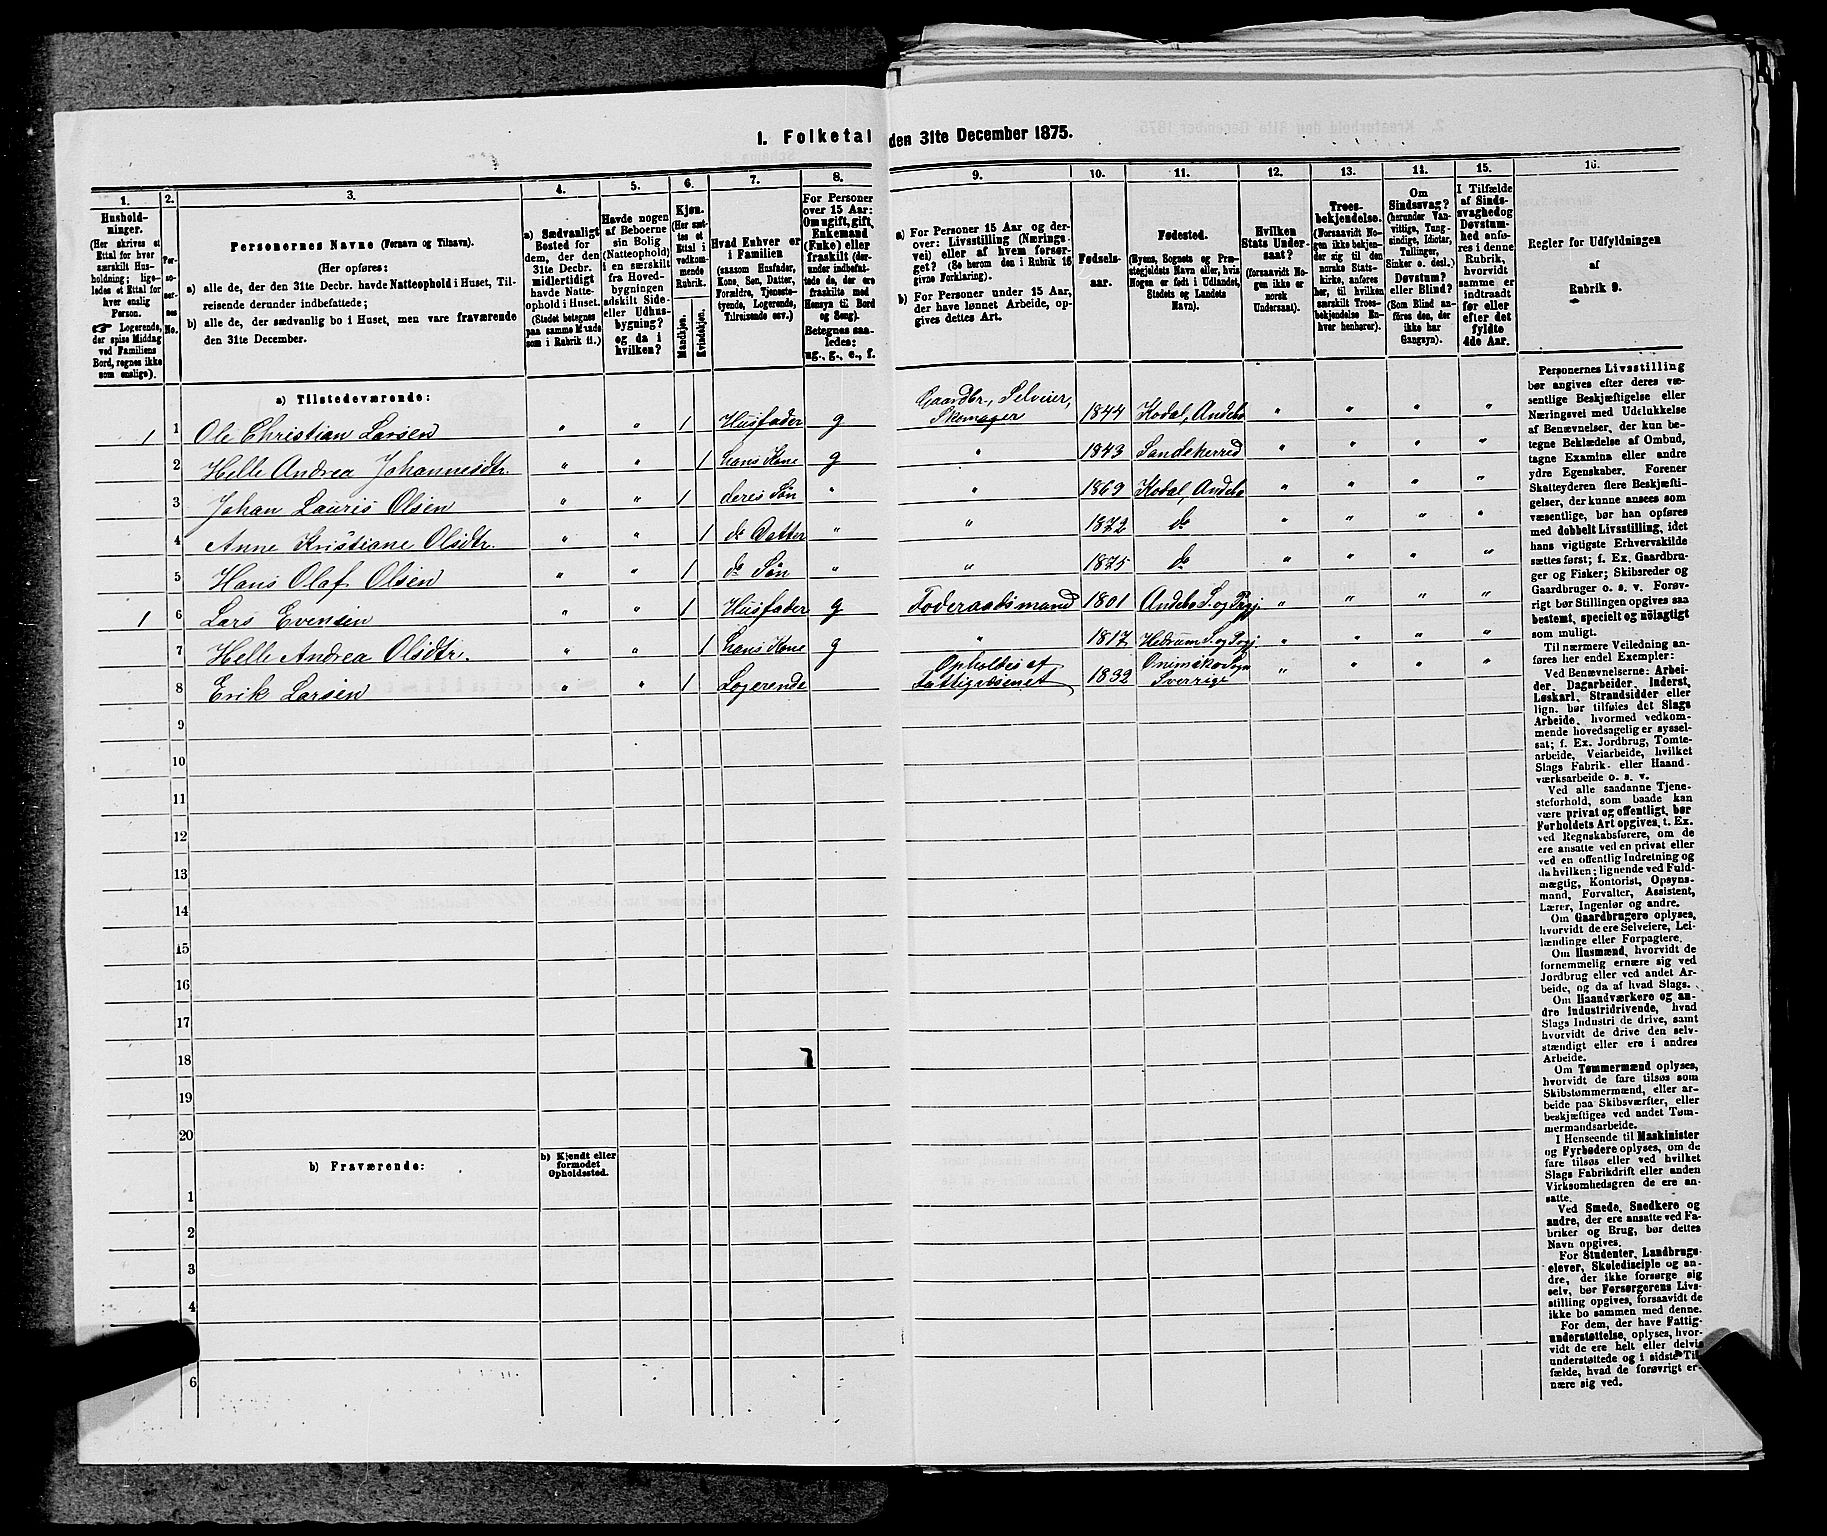 1. Folketal den 31te December 1875.
1. 2. 3. 4. 5. 6. 7. 8. 9. 10. 11. 12. 13. 14. 15. 16.
Hushold-
ninger.
(Her skrives et
Ettal for hver
særskilt Hus-
holdning; lige-
ledes et Ettal for
hver enslig
Person.
☞ Logerende,
der spise Middag
ved Familiens
Bord, regnes ikke
som enslige).
Per-
so-
ner-
nes
No.
Personernes Navne (Fornavn og Tilnavn).
(Her opføres:
a) alle de, der den 31te Decbr. havde Natteophold i Huset, Til-
reisende derunder indbefattede;
b) alle de, der sædvanlig bo i Huset, men vare fraværende
den 31te December.
a) Sædvanligt
Bosted for
dem, der den
31te Decbr.
midlertidigt
havde Natte-
ophold i Huset.
(Stedet betegnes
paa samme Maade
som i Rubrik 11.)
Havde nogen
af Beboerne
sin Bolig
(Natteophold)
i en særskilt
fra Hoved-
bygningen
adskilt Side-
eller Udhus-
bygning?
og da i
hvilken?
Kjøn.
(Her sæt-
tes et
Ettal i
vedkom-
mende
Rubrik.
Mandkjøn.
Kvindekjøn.
Hvad Enhver er
i Familien
(saasom Husfader,
Kone, Søn, Datter,
Forældre, Tjeneste-
tyende, Logerende,
Tilreisende osv.)
For Personer
over 15 Aar:
Om ugift, gift,
Enkemand
(Enke) eller
fraskilt (der-
under indbefat-
tede de, der ere
fraskilte med
Hensyn til Bord
og Seng).
Betegnes saa-
ledes:
ug., g., e., f.
a) For Personer 15 Aar og der-
over: Livsstilling (Nærings-
vei) eller af hvem forsør-
get? (Se herom den i Rubrik 16
givne Forklaring).
b) For Personer under 15 Aar,
der have lønnet Arbeide, op-
gives dettes Art.
Fødsels-
aar.
Fødested.
(Byens, Sognets og Præ-
stegjeldets Navn eller, hvis
Nogen er født i Udlandet,
Stedets og Landets
Navn).
Hvilken
Stats Under-
saat?
(forsaavidt No-
gen ikke er
norsk
Undersaat).
Troes-
bekjendelse.
(Forsaavidt No-
gen ikke bekjen-
der sig til den
norske Stats-
kirke, anføres
her, til hvilken
særskilt Troes-
bekjendelse En-
hver henhører).
Om
Sindssvag?
(herunder Van-
vittige, Tung-
sindige, Idioter,
Tullinger,
Sinker o. desl.)
Døvstum?
eller Blind?
(Som Blind an-
føres den, der
ikke har
Gangsyn).
I Tilfælde
af Sinds-
svaghed og
Døvstum-
hed anfø-
res i denne
Rubrik,
hvorvidt
samme er
indtraadt
før eller
efter det
fyldte
4de Aar.
Regler for Udfyldningen
af
Rubrik 9.
a) Tilstedeværende:
1 1 Ole Christian Larsen " " 1 Husfader g Gaardbr., Selveier, Skomager 1844 Kodal, Andebo " " " "
2 Helle Andrea Johannesdtr. " " 1 hans Kone g " 1843 Sandeherred " " " "
3 Johan Lauris Olsen " " 1 deres Søn " " 1869 Kodal, Andebo " " " "
4 Anne Kristiane Olsdtr. " " 1 do Datter " " 1872 do " " " "
5 Hans Olaf Olsen " " 1 do Søn " " 1875 do " " " "
1 6 Lars Evensen " " 1 Husfader g Foderaadsmand 1801 Andebo S. og Pgj. " " " "
7 Helle Andrea Olsdtr. " " 1 hans Kone g " 1817 Hedrum S. og Pgj. " " " "
8 Erik Larsen " " 1 Logerende Opholdes af Fattigvæsenet 1832 Sverrige " " " "
9
10
11
12
13
14
15
16
17
18
19
20
b) Fraværende:
b) Kjendt eller
formodet
Opholdssted.
1
2
3
4
6
Personernes Livsstilling
bør angives efter deres væ-
sentlige Beskjæftigelse eller
Næringsvei med Udelukkelse
af Benævnelser, der kun be-
tegne Beklædelse af Ombud,
tagne Examina eller andre
ydre Egenskaber. Forener
Skatteyderen flere Beskjæfti-
gelser, der kunne ansees som
væsentlige, bør han opføres
med dobbelt Livsstilling, idet
hans vigtigste Erhvervskilde
sættes først; f. Ex. Gaardbru-
ger og Fisker; Skibsreder og
Gaardbruger o. s. v. Forøv-
rigt bør Stillingen opgives saa
bestemt, specielt og nøiagtigt
som muligt.
Til nærmere Veiledning an-
føres her endel Exempler:
Ved Benævnelserne: Arbei-
der, Dagarbeider, Inderst,
Løskarl, Strandsidder eller
lign. bør tilføies det Slags
Arbeide, hvormed vedkom-
mende hovedsagelig er syssel-
sat; f. Ex. Jordbrug, Tomte-
arbeide, Veiarbeide, hvilket
Slags Fabrik- eller Haand-
værksarbeide o. s. v.
Ved alle saadanne Tjene-
steforhold, som baade kan
være privat og offentligt, bør
Forholdets Art opgives, t. Ex.
ved Regnskabsførere, om de
ere ansatte ved en privat eller
ved en offentlig Indretning og
da hvilken; lignende ved Fuld-
mægtig, Kontorist, Opsyns-
mand, Forvalter, Assistent,
Lærer, Ingeniør og andre.
Om Gaardbrugere oplyses,
hvorvidt de ere Selveiere, Lei-
lændinge eller Forpagtere.
Om Husmænd, hvorvidt de
fornemmelig ernære sig ved
Jordbrug eller ved andet Ar-
beide, og da af hvad Slags.
Om Haandværkere og an-
dre Industridrivende, hvad
Slags Industri de drive, samt
hvorvidt de drive den selv-
stændigt eller ere i andres
Arbeide.
Om Tømmermænd oplyses,
hvorvidt de fare tilsøs som
Skibstømmermænd, eller ar-
beide paa Skibsværfter, eller
beskjæftiges ved andet Tøm-
mermandsarbeide.
I Henseende til Maskinister
og Fyrbødere oplyses, om de
fare tilsøs eller ved hvilket
Slags Fabrikdrift eller anden
Virksomhedsgren de ere an-
satte.
Ved Smede, Snedkere og
andre, der ere ansatte ved Fa-
briker og Brug, bør dettes
Navn opgives.
For Studenter, Landbrugs-
elever, Skoledisciple og an-
dre, der ikke forsørge sig
selv, bør Forsørgerens Livs-
stilling opgives, forsaavidt de
ikke bo sammen med denne.
For dem, der have Fattig-
understøttelse, oplyses, hvor-
vidt de ere helt eller delvis
understøttede og i sidste Til-
fælde, hvad de forøvrigt er-
nære sig ved.